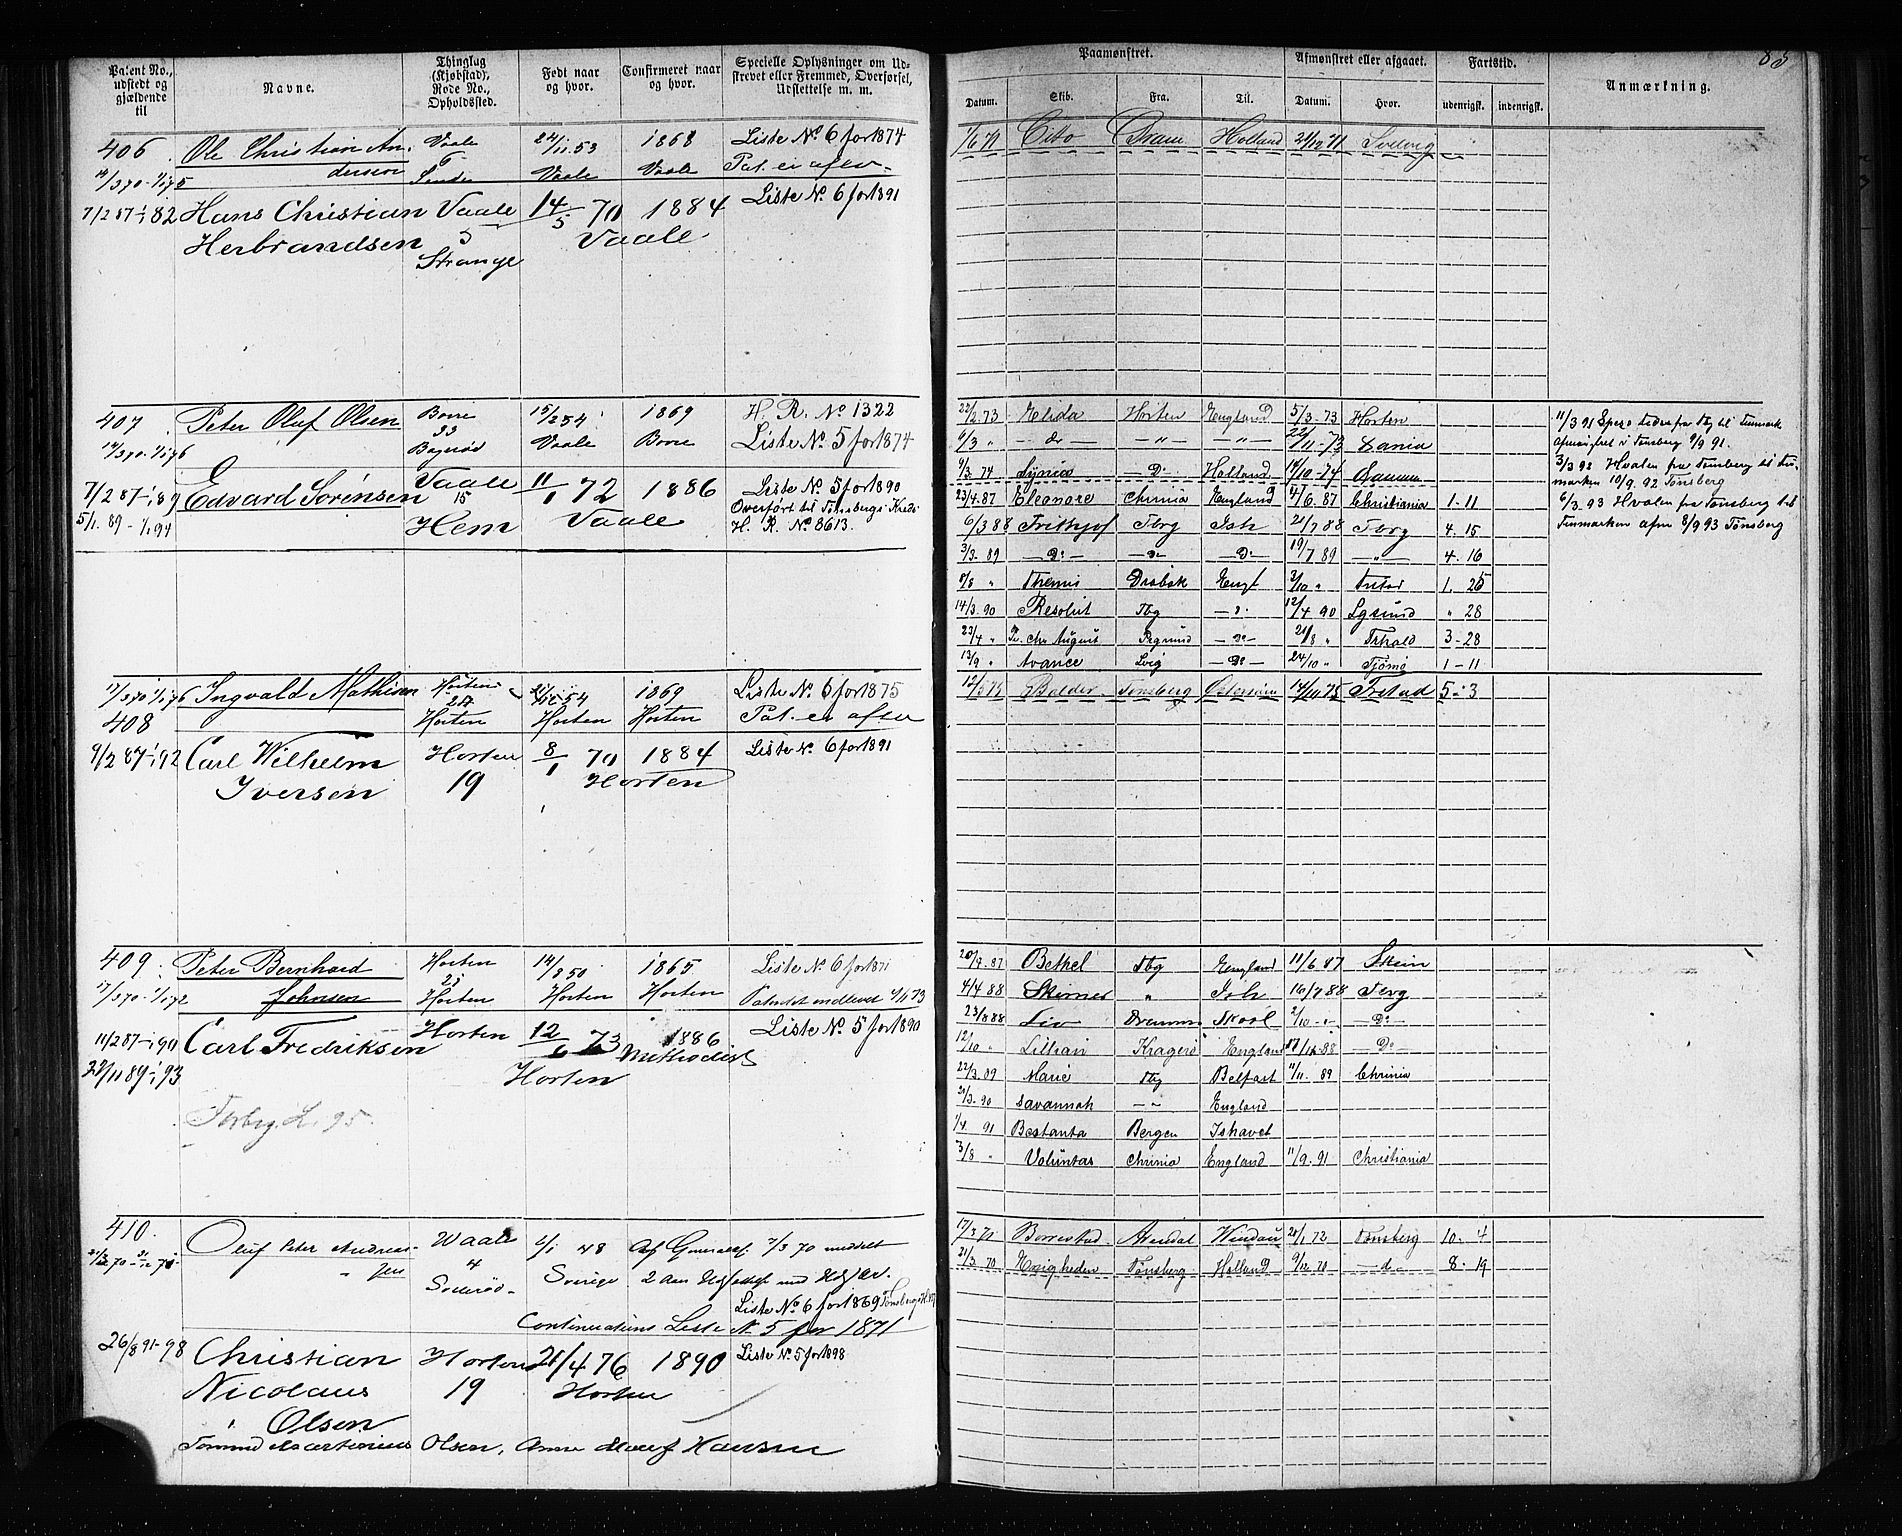 Patent No., udstedt og gjældende til
Navne.
Thinglag (Kjøbstad), Rode No., Opholdssted.
Født naar og hvor.
Confirmeret naar og hvor.
Specielle Oplysninger om Udskrevet eller Fremmed, Overførsel, Udslettelse m. m.
Paamønstret.
Datum.
Skib.
Fra.
Til.
Afmønstret eller afgaaet.
Datum.
Hvor.
Fartstid.
udenrigsk.
indenrigsk.
Anmærkning.
85
406 Ole Christian An- Vaale 24/11.53 1868 Liste No 6 for 1874
dersen Vaale Vaale Pat. er aflev
Holland 21/12 71 Svelvig
7/2 87-1/1 82 Hans Christian Vaale 14/5 70 1884 Liste No 6 for 1891
Herbrandsen 5 Vaale
Strange
407 Peter Oluf Olsen Borre 15/2 54 1869 H. R. No 1322
33
Vaale Borre Liste No 5 for 1874
7/2 87-1/1 89 Edvard Sorensen Vaale 11/1 72 1886 Liste No 5 for 1890
15 Overført til Tønsbergs Kreds
5/1. 89 - 1/1 94 Hem Vaale H. R. No 8613.
22/2.73 Elida Horten England 5/3 73 Horten
6/3 " - do - " - - " - 22/11-73
9/3 74 - Do - Holland 14/10-74
23/4.87 Eleonore Chrinia England 4/6 87 Christiania 1-11
6/3 88 Frithjof Tbrg 21/7 88 Tbrg 4. 15
3/3. 89 - Do - - Do - - Do - 19/7 89 - " - 4. 16
8/8 " Themis Drøbak Engl 2/10 " Frstad 1. 25
14/3. 90 Resolut Tbg - " - 12/4 90 Lgsund " 28
23/4 " Pr. Chr. August Prgrund - Do - 21/8 " Frhald 3-28
13/9 " Avance Lvig - Do - 24/10 " Tjømø 1-11
11/3 91 Spero fra Tbg til Finmark
afmønstret i Tønsberg 9/9 91.
3/3 92 Hvalen fra Tønsberg til Fin-
marken 10/9. 92 Tønsberg
6/3. 93 Hvalen fra Tønsberg til
Finmarken afm 8/9 93 Tønsberg
Ingvald Mathisen Horten 1869 Liste No 6 for 1875
408 Horten Horten Horten Pat. er aflev
12/5 75 Balder Tønsberg 14/10 75 Frstad 5 " 3
9/2 87-1/1 92 Carl Wilhelm Horten 8/1 70 1884 Liste No 6 for 1891
Iversen 19 Horten
409 Peter Bernhard Horten 14/8 50 1865 Liste No 6 for 1871
23
17/3 70 - 1/1 72 Johnsen Horten Horten Horten Patentet indleveret 4/11 73
11/2 87-1/1 90 Carl Fredriksen Horten 12/6 73 1886 Liste No 5 for 1890
Methodist
Horten
20/3.87 Bethel Tbg England 11/6 87 Skien
4/4 88 Skirner " 16/7 88 Tbrg
23/8 88 Liv Drammn 2/10 - " - - Do -
12/10 " Lillian Kragerø England 17/12 88 - Do -
22/3. 89 Marie Tbg Belfast 11/11. 89 Chrinia
21/3. 90 Savannah - " - England
1/4 91 Bestanta Bergen Ishavet
3/8 " Voluntas Chrinia England 11/9. 91 Christiania
410. Oluf Peter Andreas- Waale 48 Af Generalsk. 7/3 70 meddelt
sen 4 Sverige
Liste No 6 for 1869
Continuations Liste No 5 for 1871
17/3 71 Borrestad Arendal Windau 20/1 72 Tønsberg 10. 4
21/3 70 Enigheden Tønsberg Holland 9/12 70 - do - 8. 19
26/8 91-98 Christian Horten 21/4 76 1890 Liste No 5 for 1898
Nicolaus 19 Horten
Olsen
Olsen, Hansen